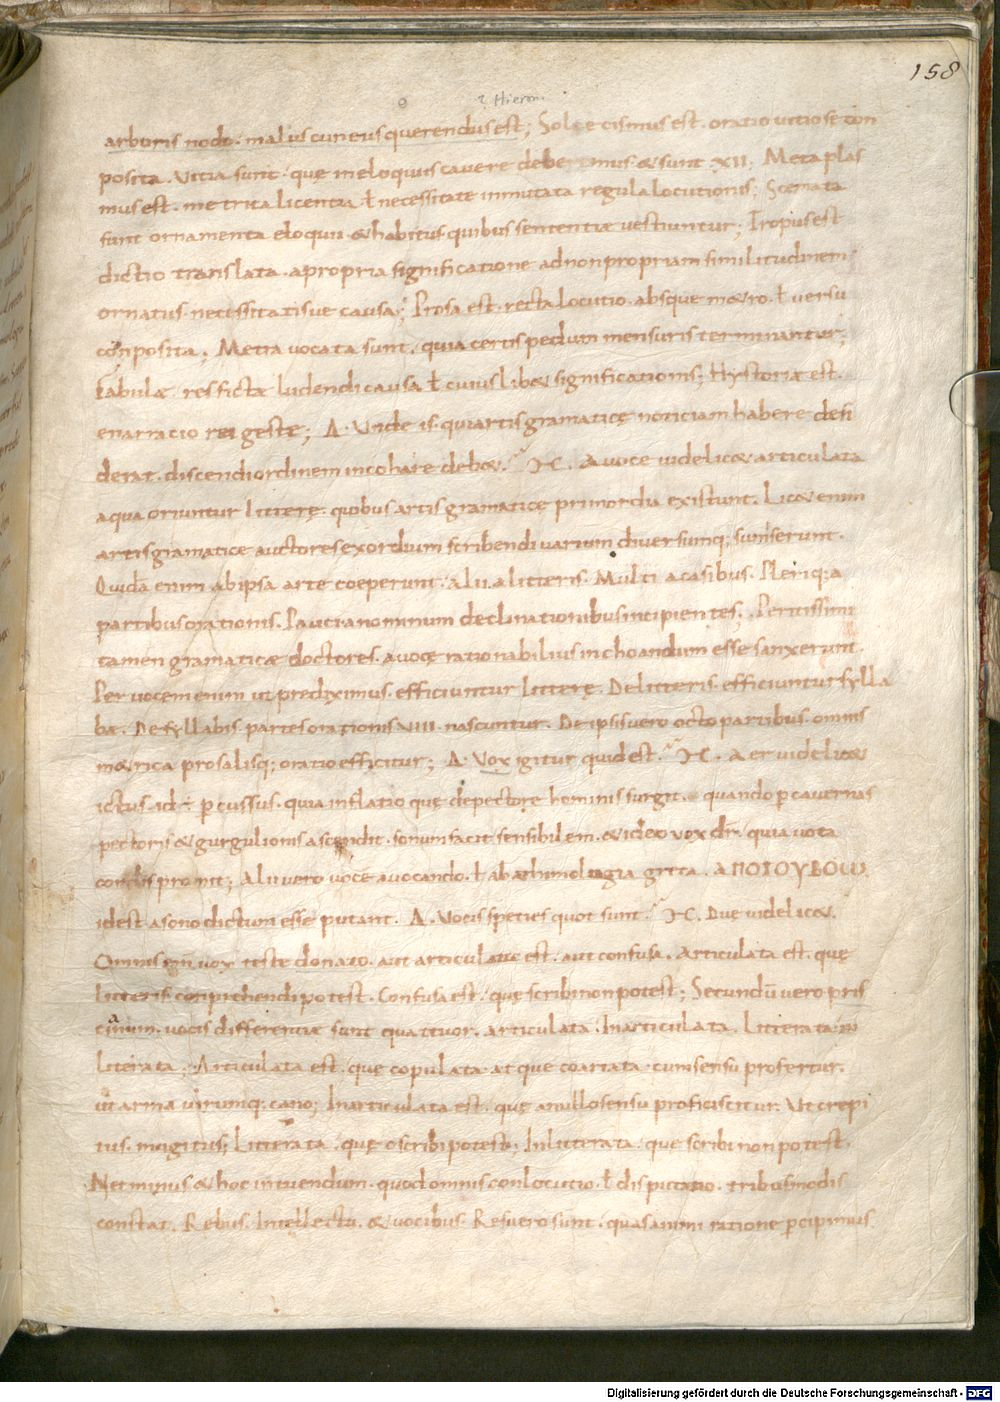 158
? Hieron.
arboris nodo. malus cuneus querendus est; Soloecismus est. oratio uitiose con
posita. Uitia sunt. quę in eloquiis cauere debemus. & sunt XII. Metaplas
mus est. metrica licentia ł necessitate inmutata regula locutionis; Scemata
sunt ornamenta eloquii. & habitus. quibus sententiæ uestiuntur; Tropus est
dictio translata. a propria significatione ad non propriam similitudinem
ornatus. necessitatisue causa; Prosa est. recta locutio. absque m&ro. ł uersu
conposita; Metra uocata sunt. quia certis pedum mensuris terminantur;
Fabulæ res fictæ ludendi causa ł cuiuslib& significationis; Hystoriæ est.
enarracio rei gestę; Δ. Unde is. qui artis gramaticę noticiam habere desi
derat. discendi ordinem incohare deb&. M. A uoce uidelic& articulata
a qua oriuntur litterę. quibus artis gramaticę primordia existunt. Lic& enim
artis gramaticæ auctores exordium scribendi uarium diuersumq; sumserunt.
Quida enim ab ipsa arte coeperunt. alii a litteris. Multi a casibus. Pleriq; a
partibus orationis. Pauci a nominum declinationibus incipientes. Peritissimi
tamen gramaticæ doctores. a uoce rationabilius inchoandum esse sanxerunt.
Per uocem enim ut prediximus. efficiuntur litterę. De litteris. efficiuntur sylla
bæ. De syllabis. partes orationis VIII. nascuntur. De ipsis uero octo partibus. omnis
m&rica prosalisq; oratio efficitur; Δ. Vox igitur quid est. M. Aer uidelic&
ictus. id ÷ p̄cussus. quia inflatio quę de pectore hominis surgit. quando p̄ cauernas
pectoris & gurgulionis ascendit. sonum facit sensibilem. & ideo uox dr̄. quia uota
cordis promit; Alii uero uocē a uocando. ł ab &himologia greca. ΑΠΟΙΟΥΒΟω.
id est a sono dictum esse putant. Δ. Uocis species quot sunt. M. Due uidelic&.
Omnis uox teste donato. aut articulata est. aut confusa. Articulata est. quę
litteris conprehendi potest. Confusa est. quę scribi non potest; Secundū uero pris
cianum. uocis differentiæ sunt quattuor. articulata. Inarticulata. Litterata. in
literata; Articulata est. quę copulata atque coartata. cum sensu profertur.
ut arma uirumq. cano; Inarticulata est. quę a nullo sensu proficiscitur. Ut crepi
tus. mugitus; Litterata. quę scribi potest; Inlitterata. que scribi non potest.
Nec minus & hoc intuendum. quod omnis conlocutio. ł disputatio. tribus modis
constat. Rebus. Intellectu. & uocibus. Res uero sunt. quas animi ratione p̄cipimus
Digitalisierung gefördert durch die Deutsche Forschungsgemeinschaft - DFG